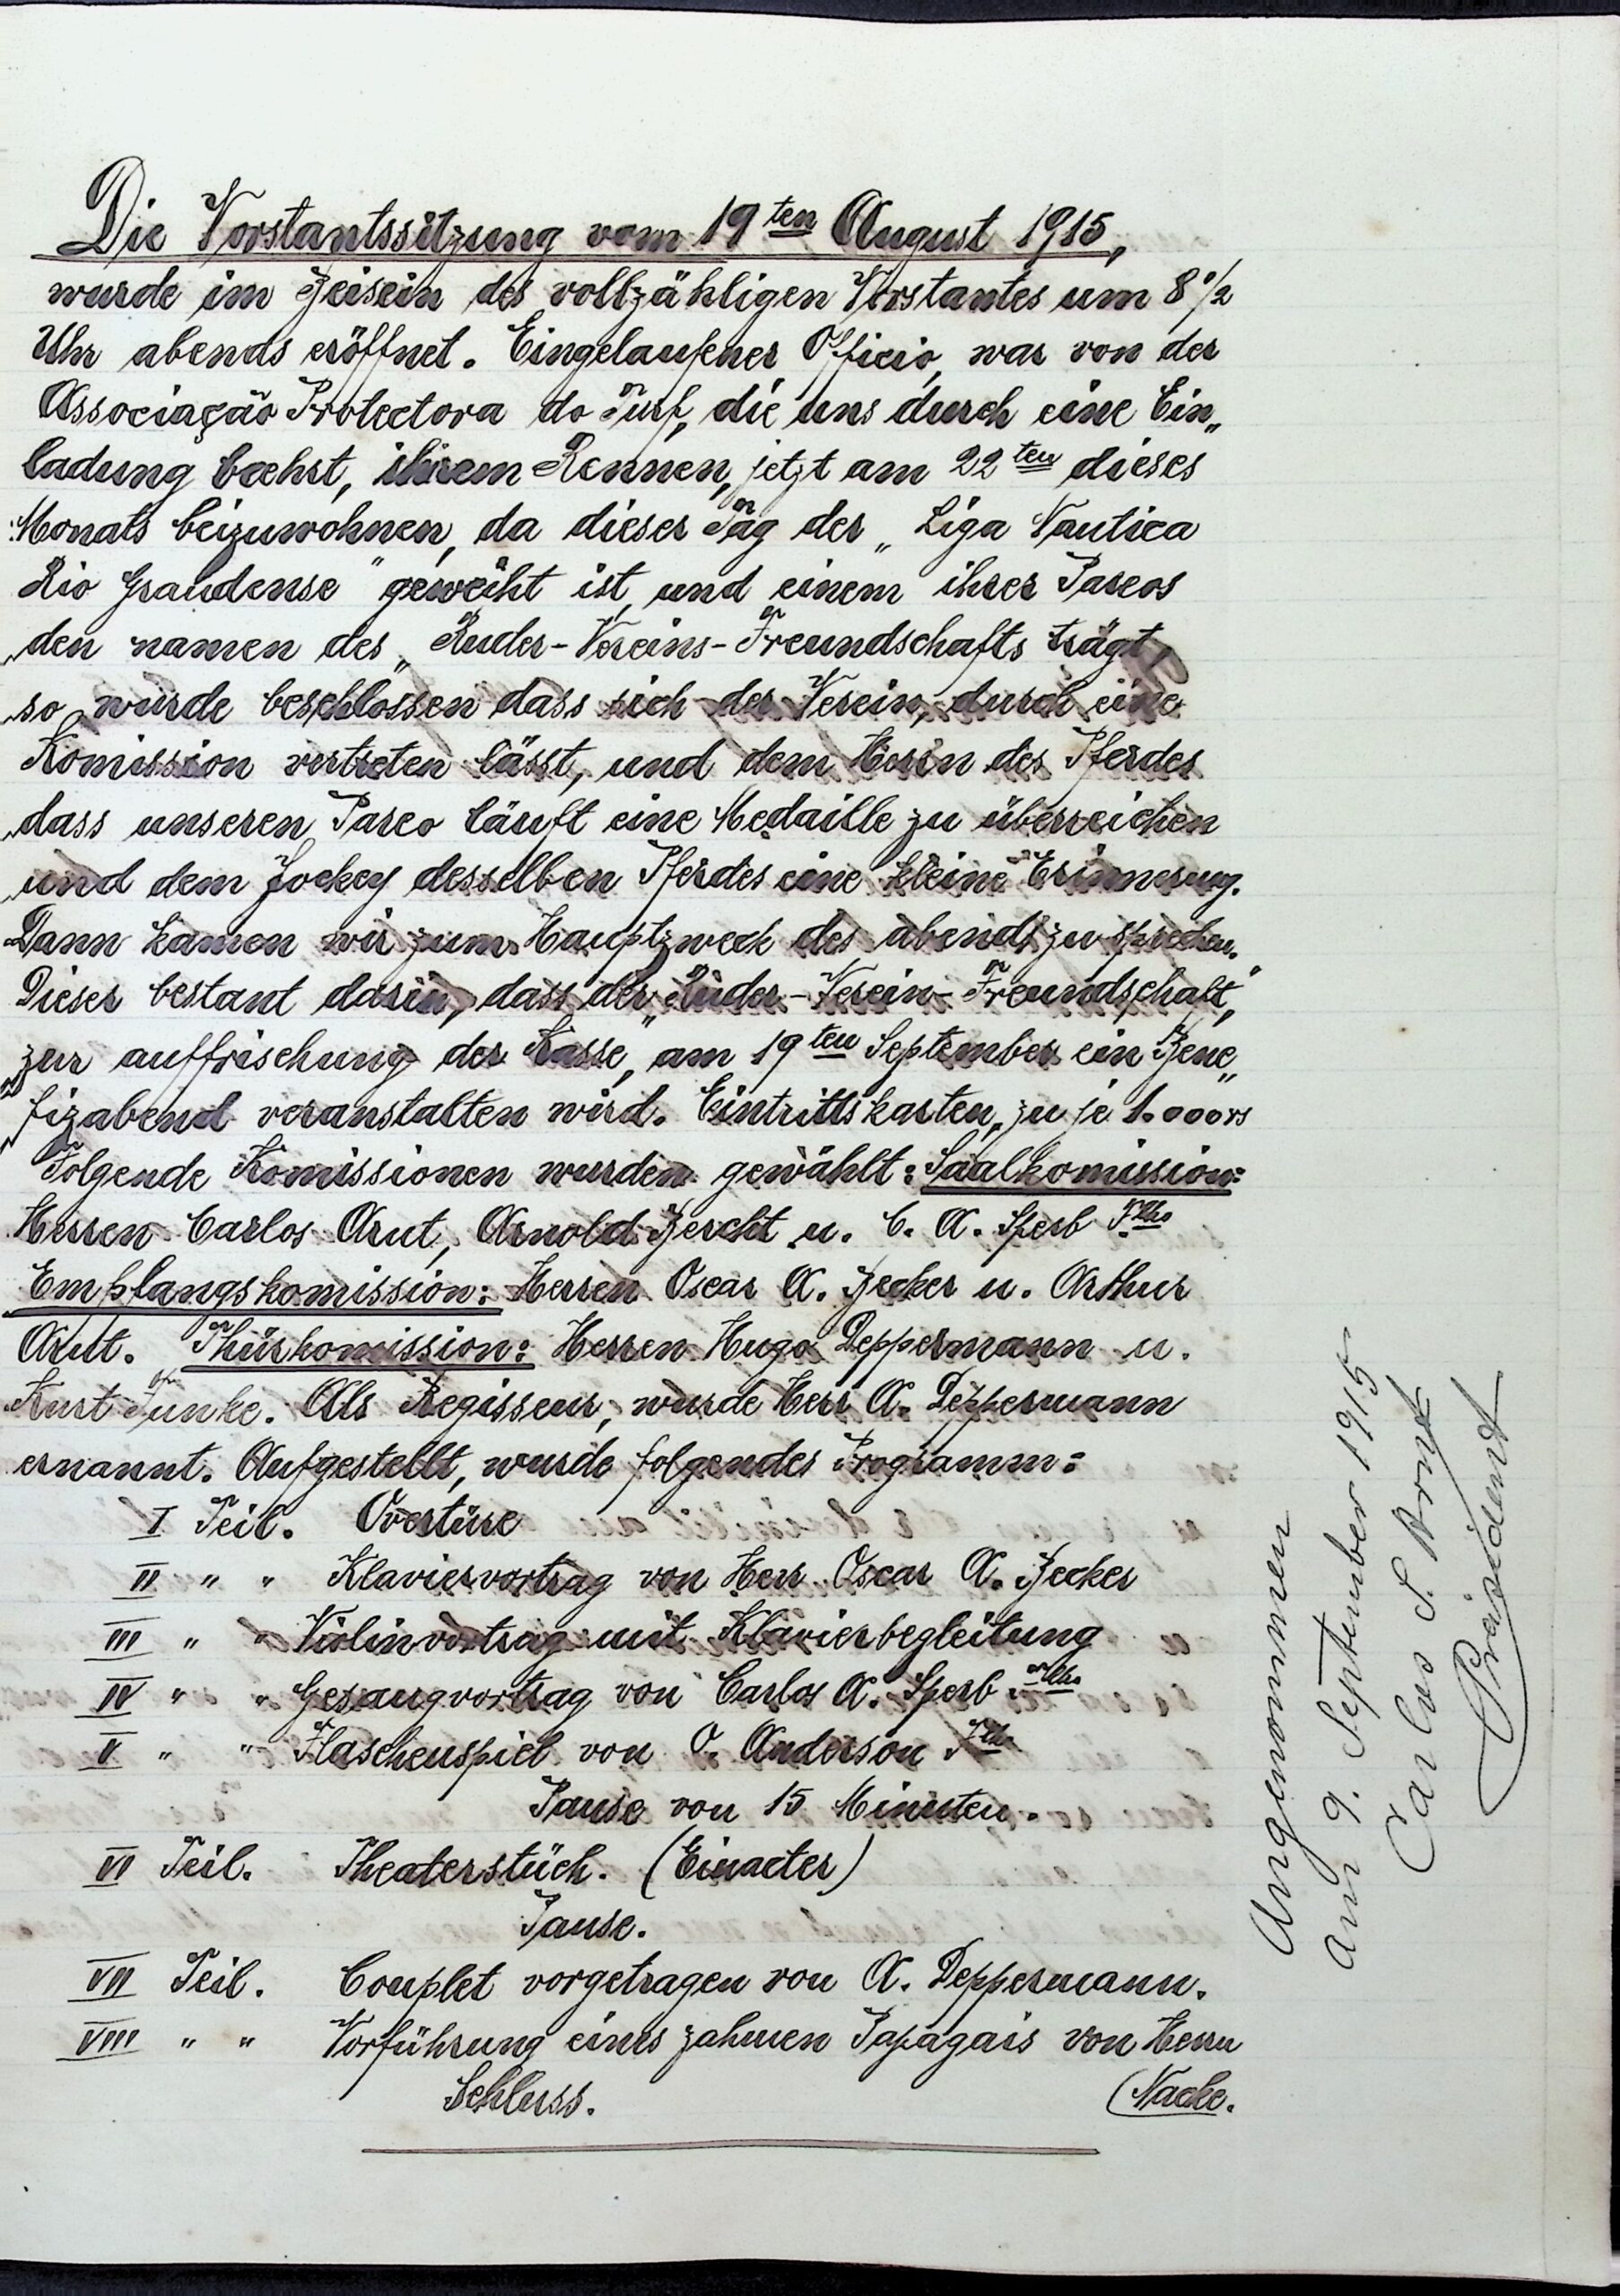 Die Vorstantssitzung vom 19ten August 1915,
wurde im Beisein des vollzähligen Vorstantes um 8 1/2
Uhr abends eröffnet. Eingelaufener Officio, war von der
Associação Protectora do Turf, die uns durch eine Ein„
ladung baehrt, ihrem Rennen, jetzt am 22ten dieses
Monats beizuwohnen, da dieser Tag der „Liga Nautica
Rio Grandense" geweiht ist, und einem ihrer Pareos
den namen des „Ruder-Vereins-Freundschafts trägt,
so wurde beschlossen dass sich der Verein, durch eine
Komission vertreten lässt, und dem Herrn des Pferdes
dass unseren Pareo läuft eine Medaille zu überreichen
und dem Jockey desselben Pferdes eine kleine Erinnerung.
Dann kamen wir zum Hauptzweck des abends zu sprechen.
Dieser bestant darin, dass der „Ruder-Verein-Freundschaft,"
zur auffrischung der Kasse, am 19ten September ein Bene„
fizabend veranstalten wird. Eintrittskarten, zu je 1.000rs
Folgende Komissionen wurden gewählt: Saalkomission:
Herren Carlos Arnt, Arnold Bercht u. C. A. Sperb Flho
Empfangskomission: Herren Oscar A. Becker u. Arthur
Arnt. Thürkomission: Herren Hugo Deppermann u.
Kurt Funke. Als Regisseur, wurde Herr A. Deppermann
ernannt. Aufgestellt, wurde folgendes Programm:
I Teil. Overtüre
II " " Klaviervortrag von Herr Oscar A. Becker
III " " Violinvortrag mit Klavierbegleitung
IV " " Gesangvortrag von Carlos A. Sperb Flho
V " " Flaschenspiel von O. Anderson Flho
Pause von 15 Minuten.
VI Teil. Theaterstück. (Einacter)
Pause.
VII Teil. Couplet vorgetragen von A. Deppermann.
VIII " " Vorführung eines zahmen Papagais von Herrn
Schluss. (Nacke.
Angenommen
am 9. September 1915
Carlos S. Arnt
Präsident